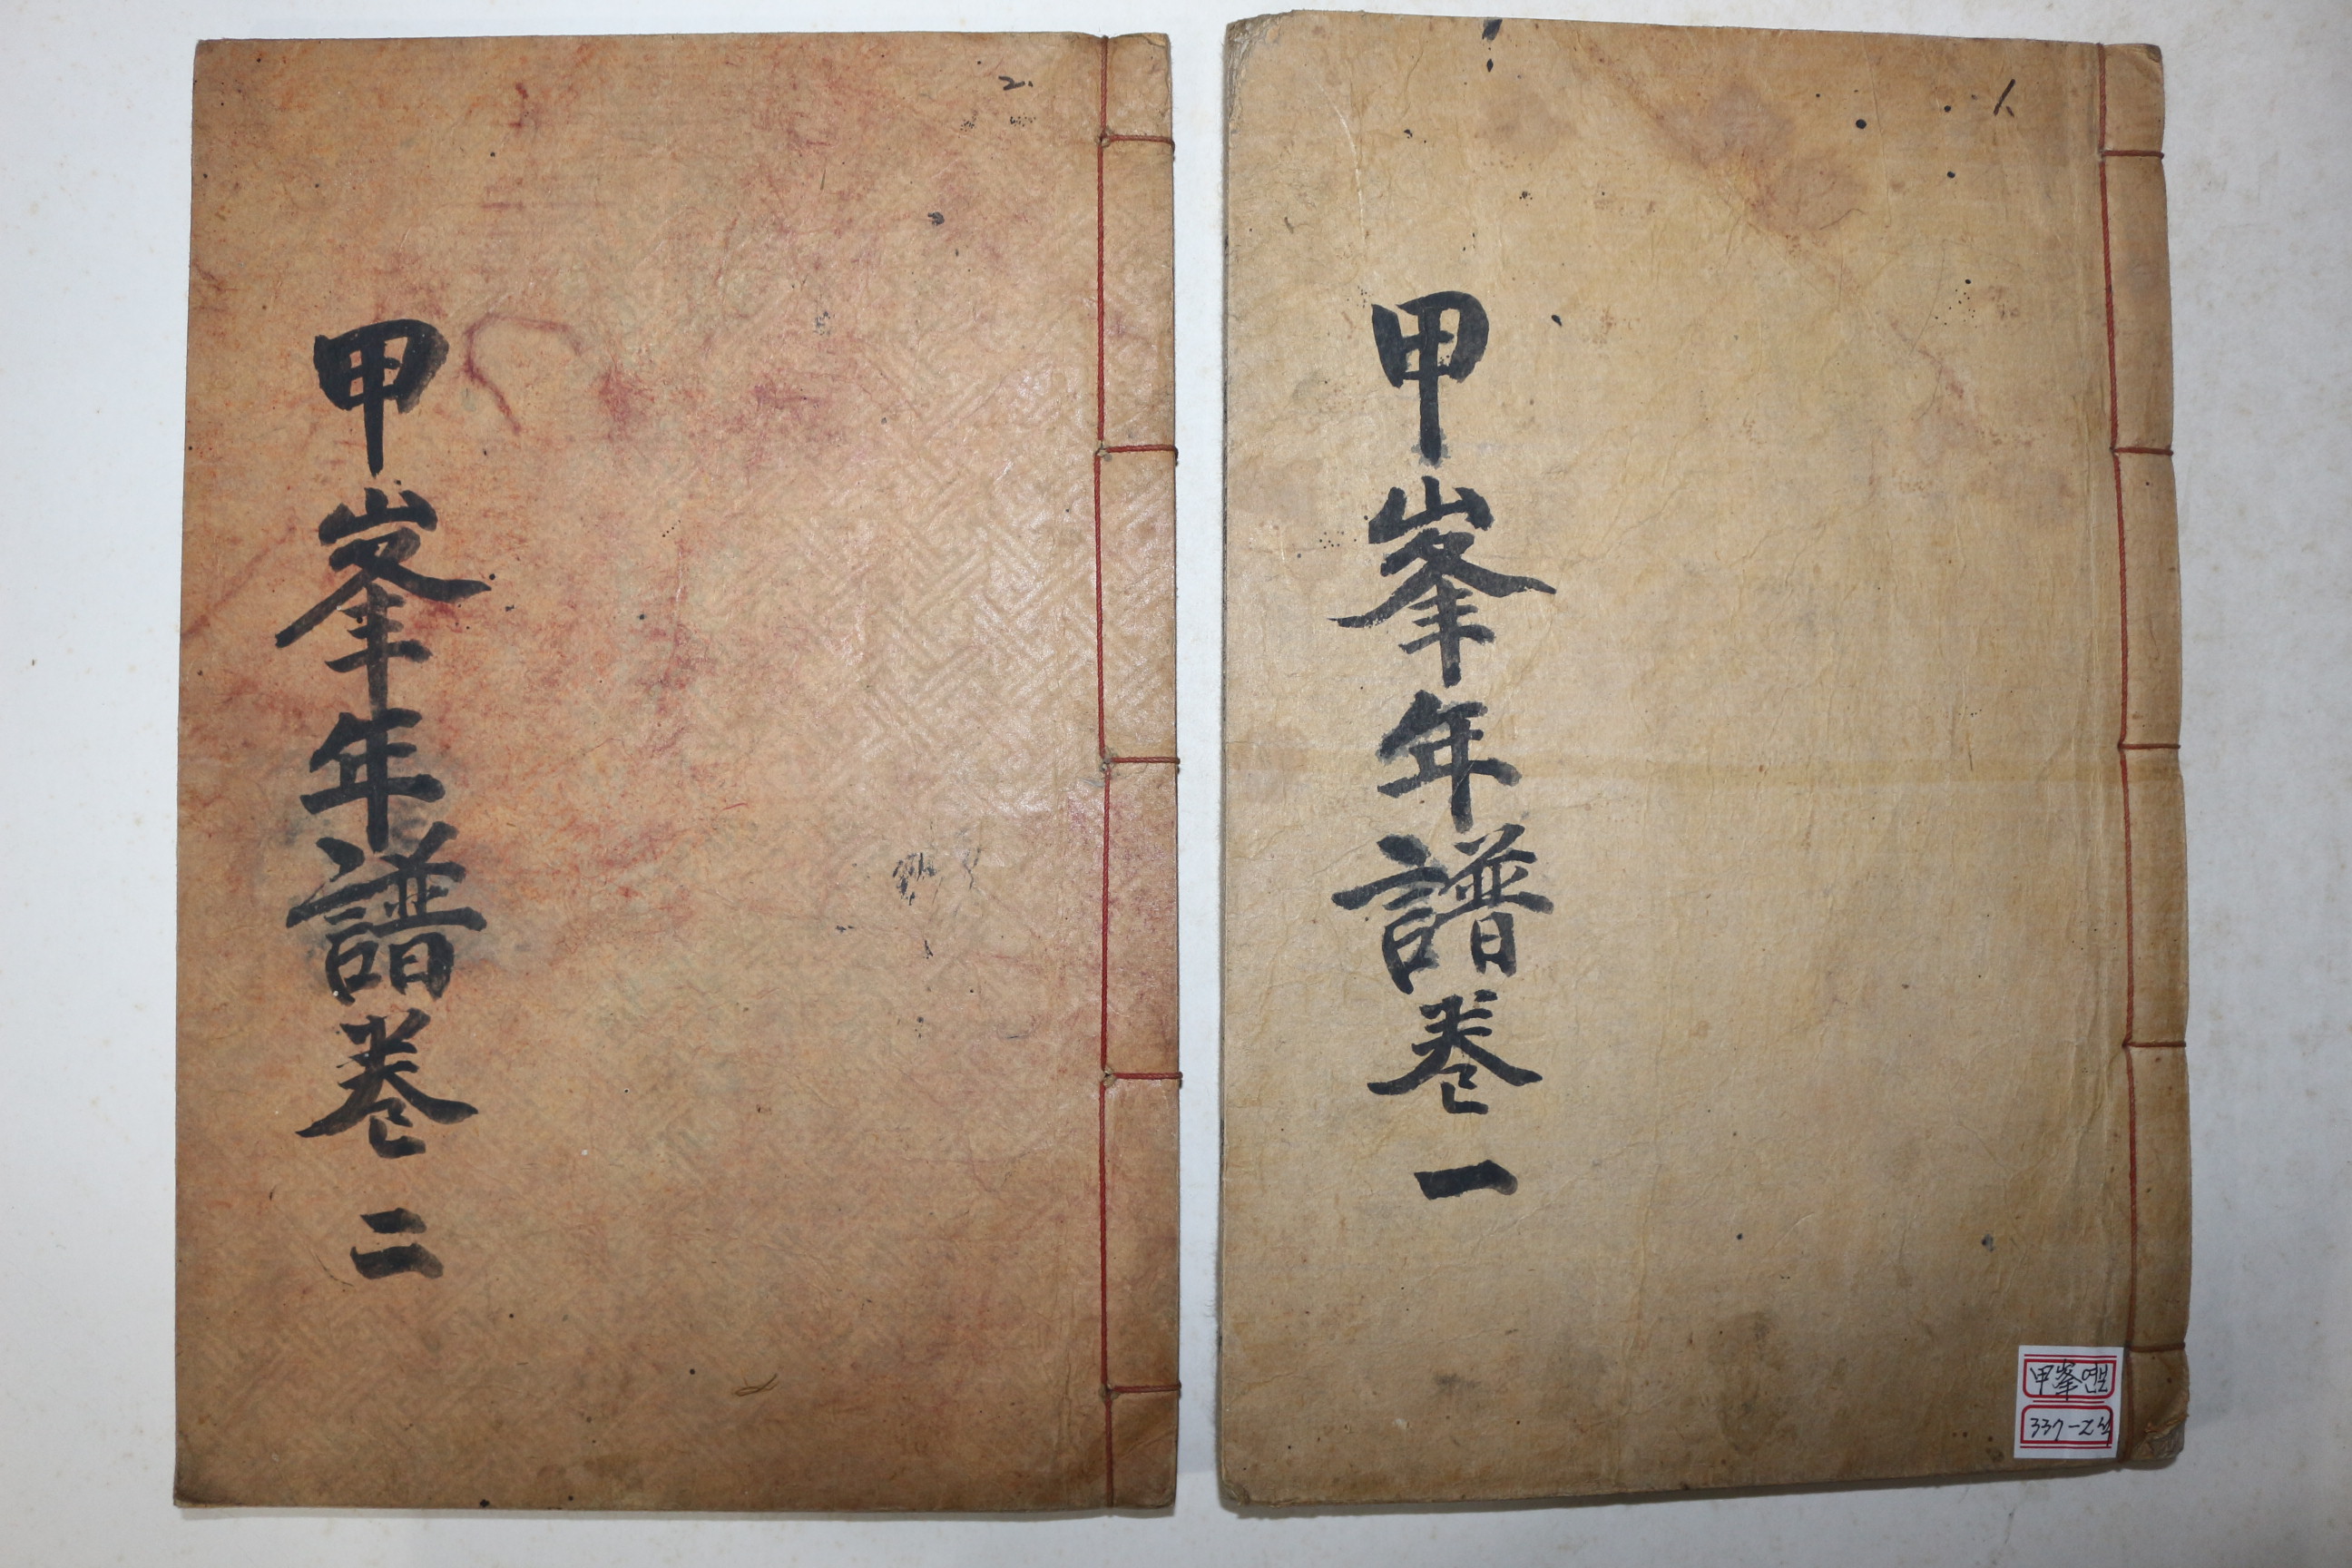 甲峯年譜卷一
1
甲峯연보
337-2冊
甲峯年譜卷二
2.